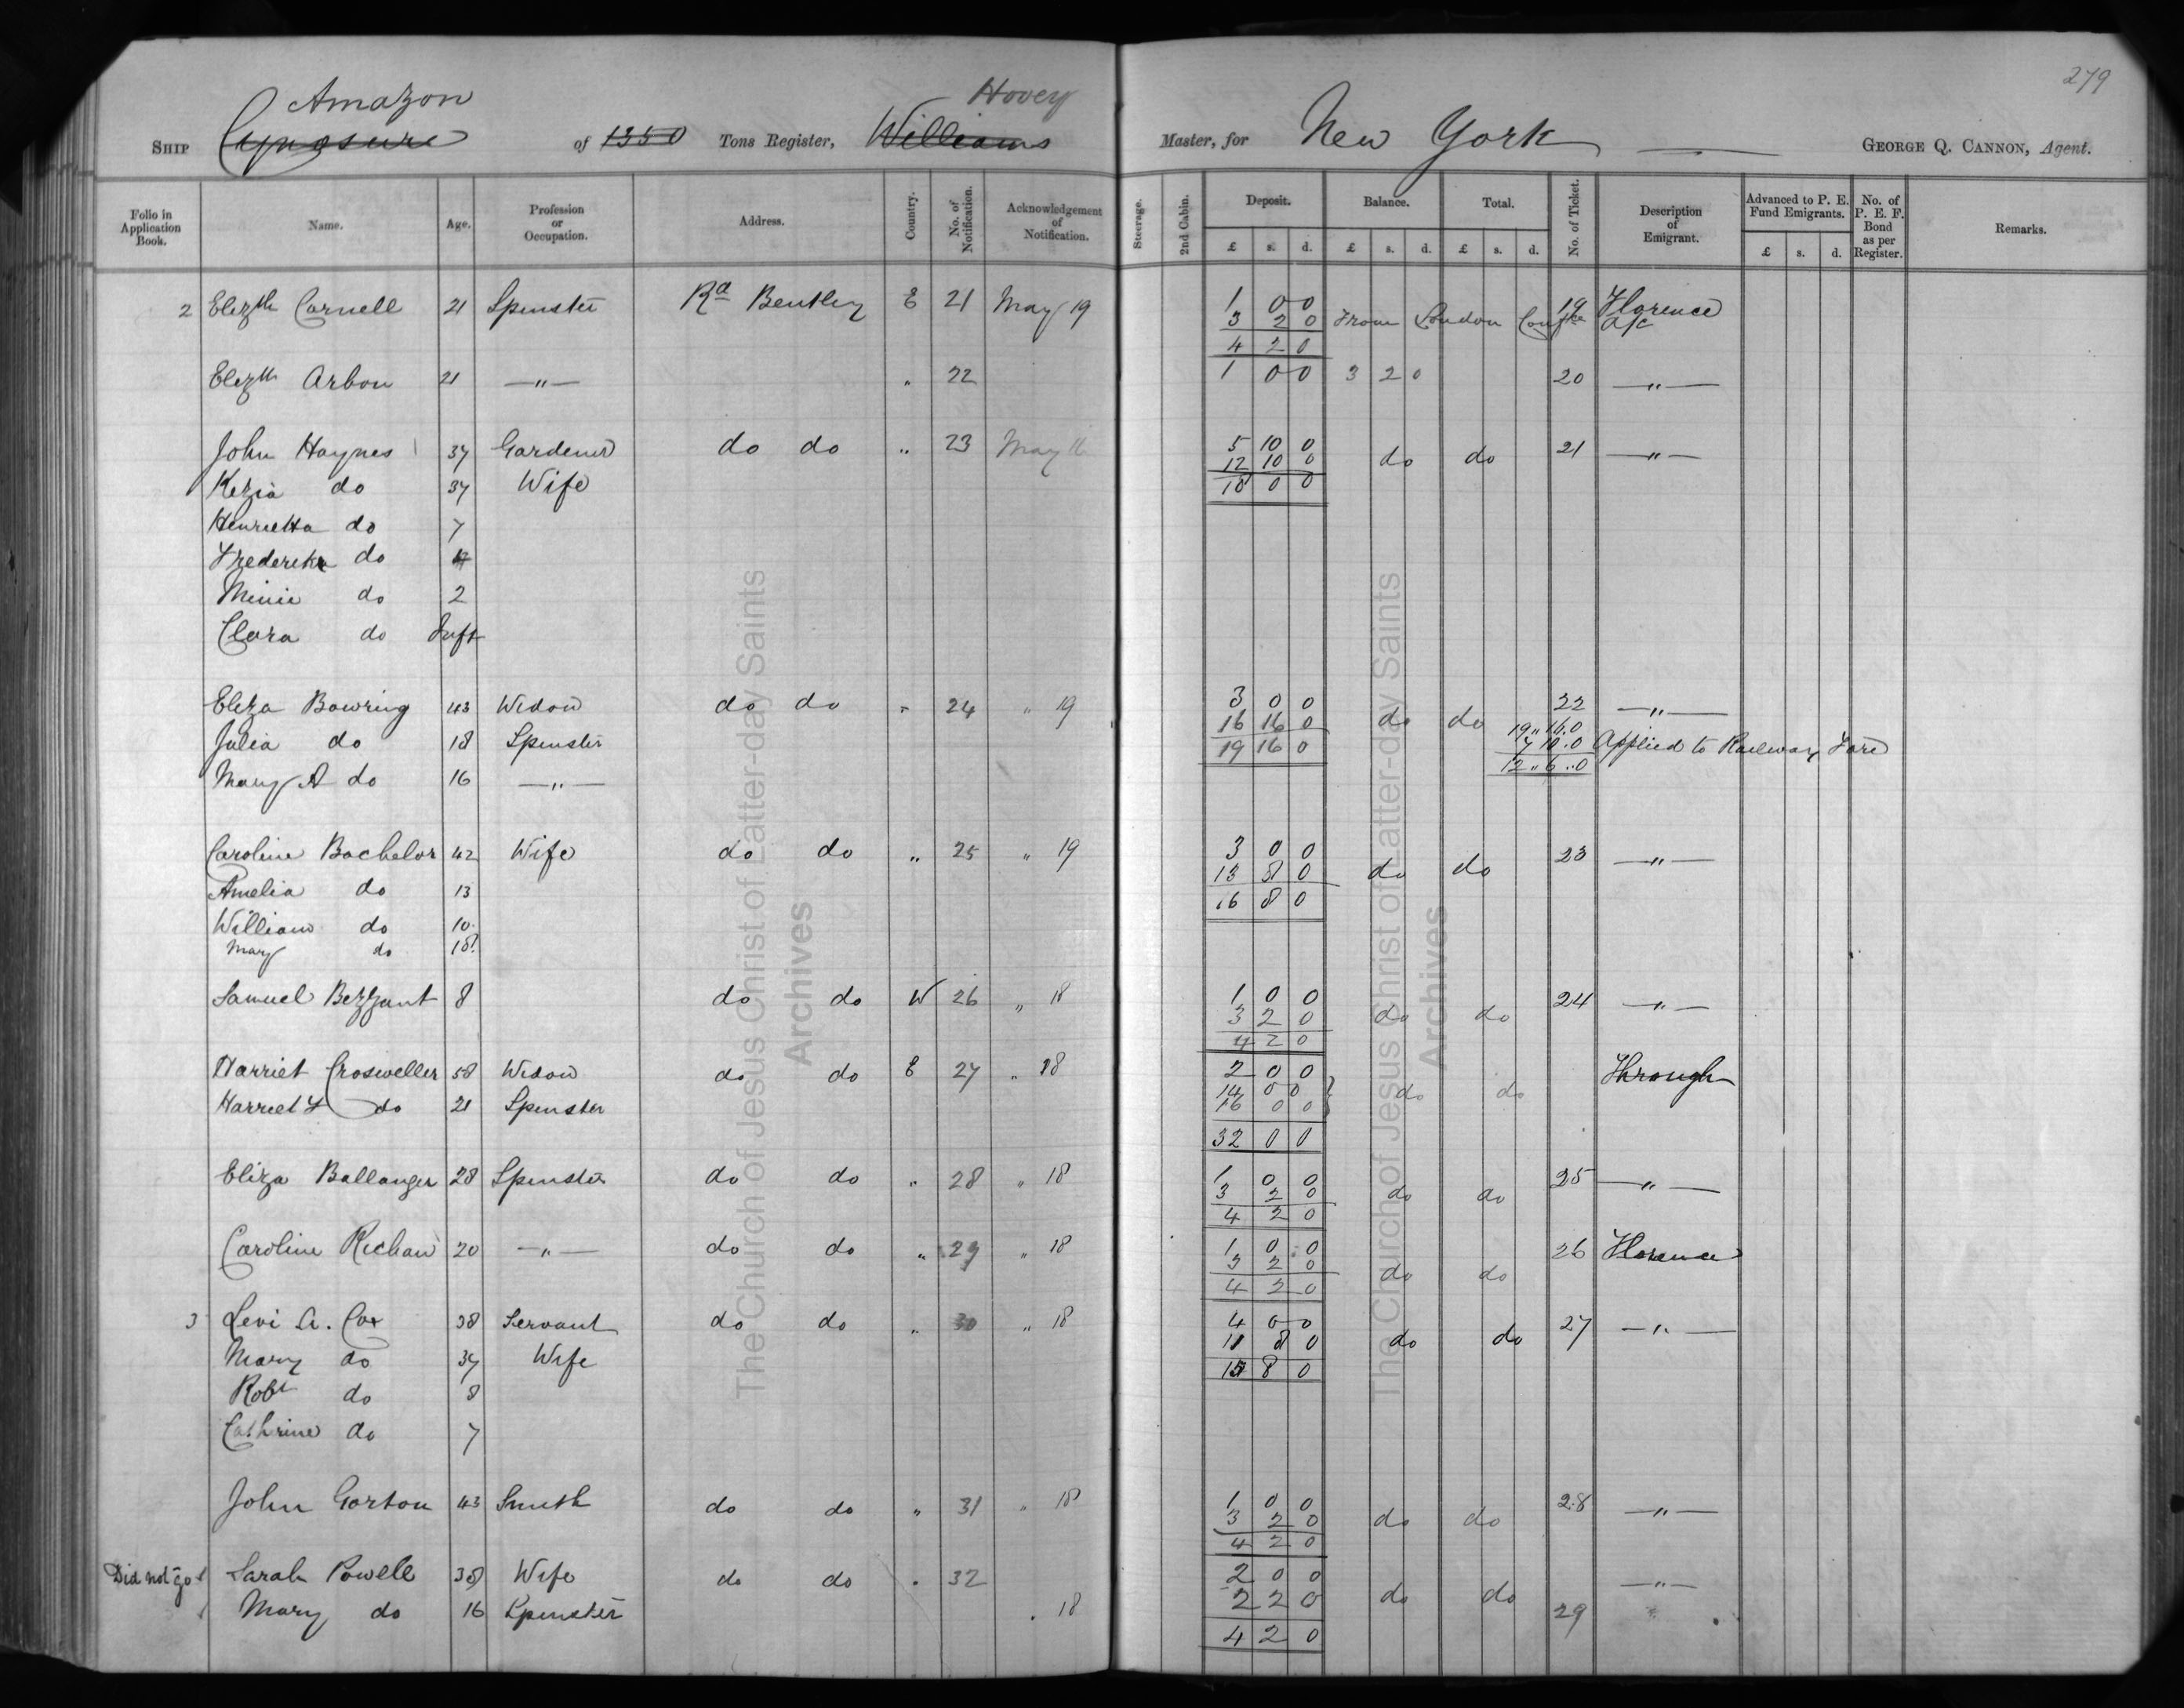 279
Amazon Hovey
SHIP Cynosure of 1350 Tons Register, Williams Master, for New York GEORGE Q. CANNON, Agent.
Folio in Application Book. Name. Age. Profession or Occupation. Address. Country. No. of Notification. Acknowledgement of Notification. Steerage. 2nd Cabin. Deposit. £ s. d. Balance. £ s. d. Total. £ s. d. No. of Ticket. Description of Emigrant. Advanced to P. E. Fund Emigrants. £ s. d. No. of P. E. F. Bond as per Register. Remarks.
2 Elizth Cornell 21 Spinster Rd Bentley E 21 May 19 1 0 0 19 Florence
3 2 0 From London Confce a/c
4 2 0
Elizth Arbon 21 —"— " 22 1 0 0 3 2 0 20 —"—
John Haynes 37 Gardener do do " 23 May 5 10 0 21 —"—
12 10 0 do do
Kezia do 37 Wife 18 0 0
Henrietta do 7
Frederick do
Minie do 2
Clara do Inft
Eliza Bowring 43 Widow do do " 24 " 19 3 0 0 22 —"—
16 16 0 do do 19 " 16.0
Julia do 18 Spinster 19 16 0 7 10.0 Applied to Railway Fare
12 " 6 .. 0
Mary A do 16 —"—
Caroline Bachelor 42 Wife do do " 25 " 19 3 0 0 23 —"—
13 8 0 do do
Amelia do 13 16 8 0
William do 10
Mary do 18
Samuel Bezzant 8 do do W 26 " 18 1 0 0 24 —"—
3 2 0 do do
4 2 0
Harriet Crosweller 58 Widow do do E 27 " 18 2 0 0 Through
14 0 0 do do
Harriet F do 21 Spinster 16 0 0
32 0 0
Eliza Ballanger 28 Spinster do do " 28 " 18 1 0 0 25 —"—
3 2 0 do do
4 2 0
Caroline 20 —"— do do " 29 " 18 1 0 0 26 Florence
3 2 0 do do
4 2 0
3 Levi A. Cox 38 Servant do do " 30 " 18 4 0 0 27 —"—
11 8 0 do do
Mary do 37 Wife 15 8 0
Robt do 8
Cathrine do 7
John Gorton 43 Smith do do " 31 " 18 1 0 0 28 —"—
3 2 0 do do
4 2 0
Did not go Sarah Powell 38 Wife do do " 32 2 0 0 —"—
2 2 0 do do
Mary do 16 Spinster " 18 29
4 2 0
The Church of Jesus Christ of Latter-day Saints
Archives
The Church of Jesus Christ of Latter-day Saints
Archives